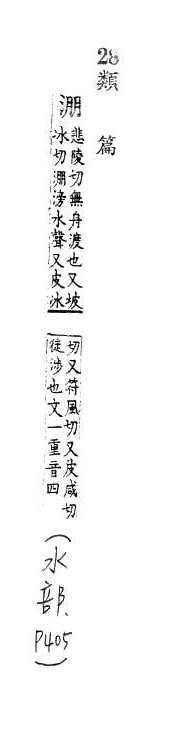 28類篇
淜
悲陵切無舟渡也又坡
冰切淜滂水聲又皮冰
切又符風切又皮咸切
徒涉也文一重音四
(水部、P405)